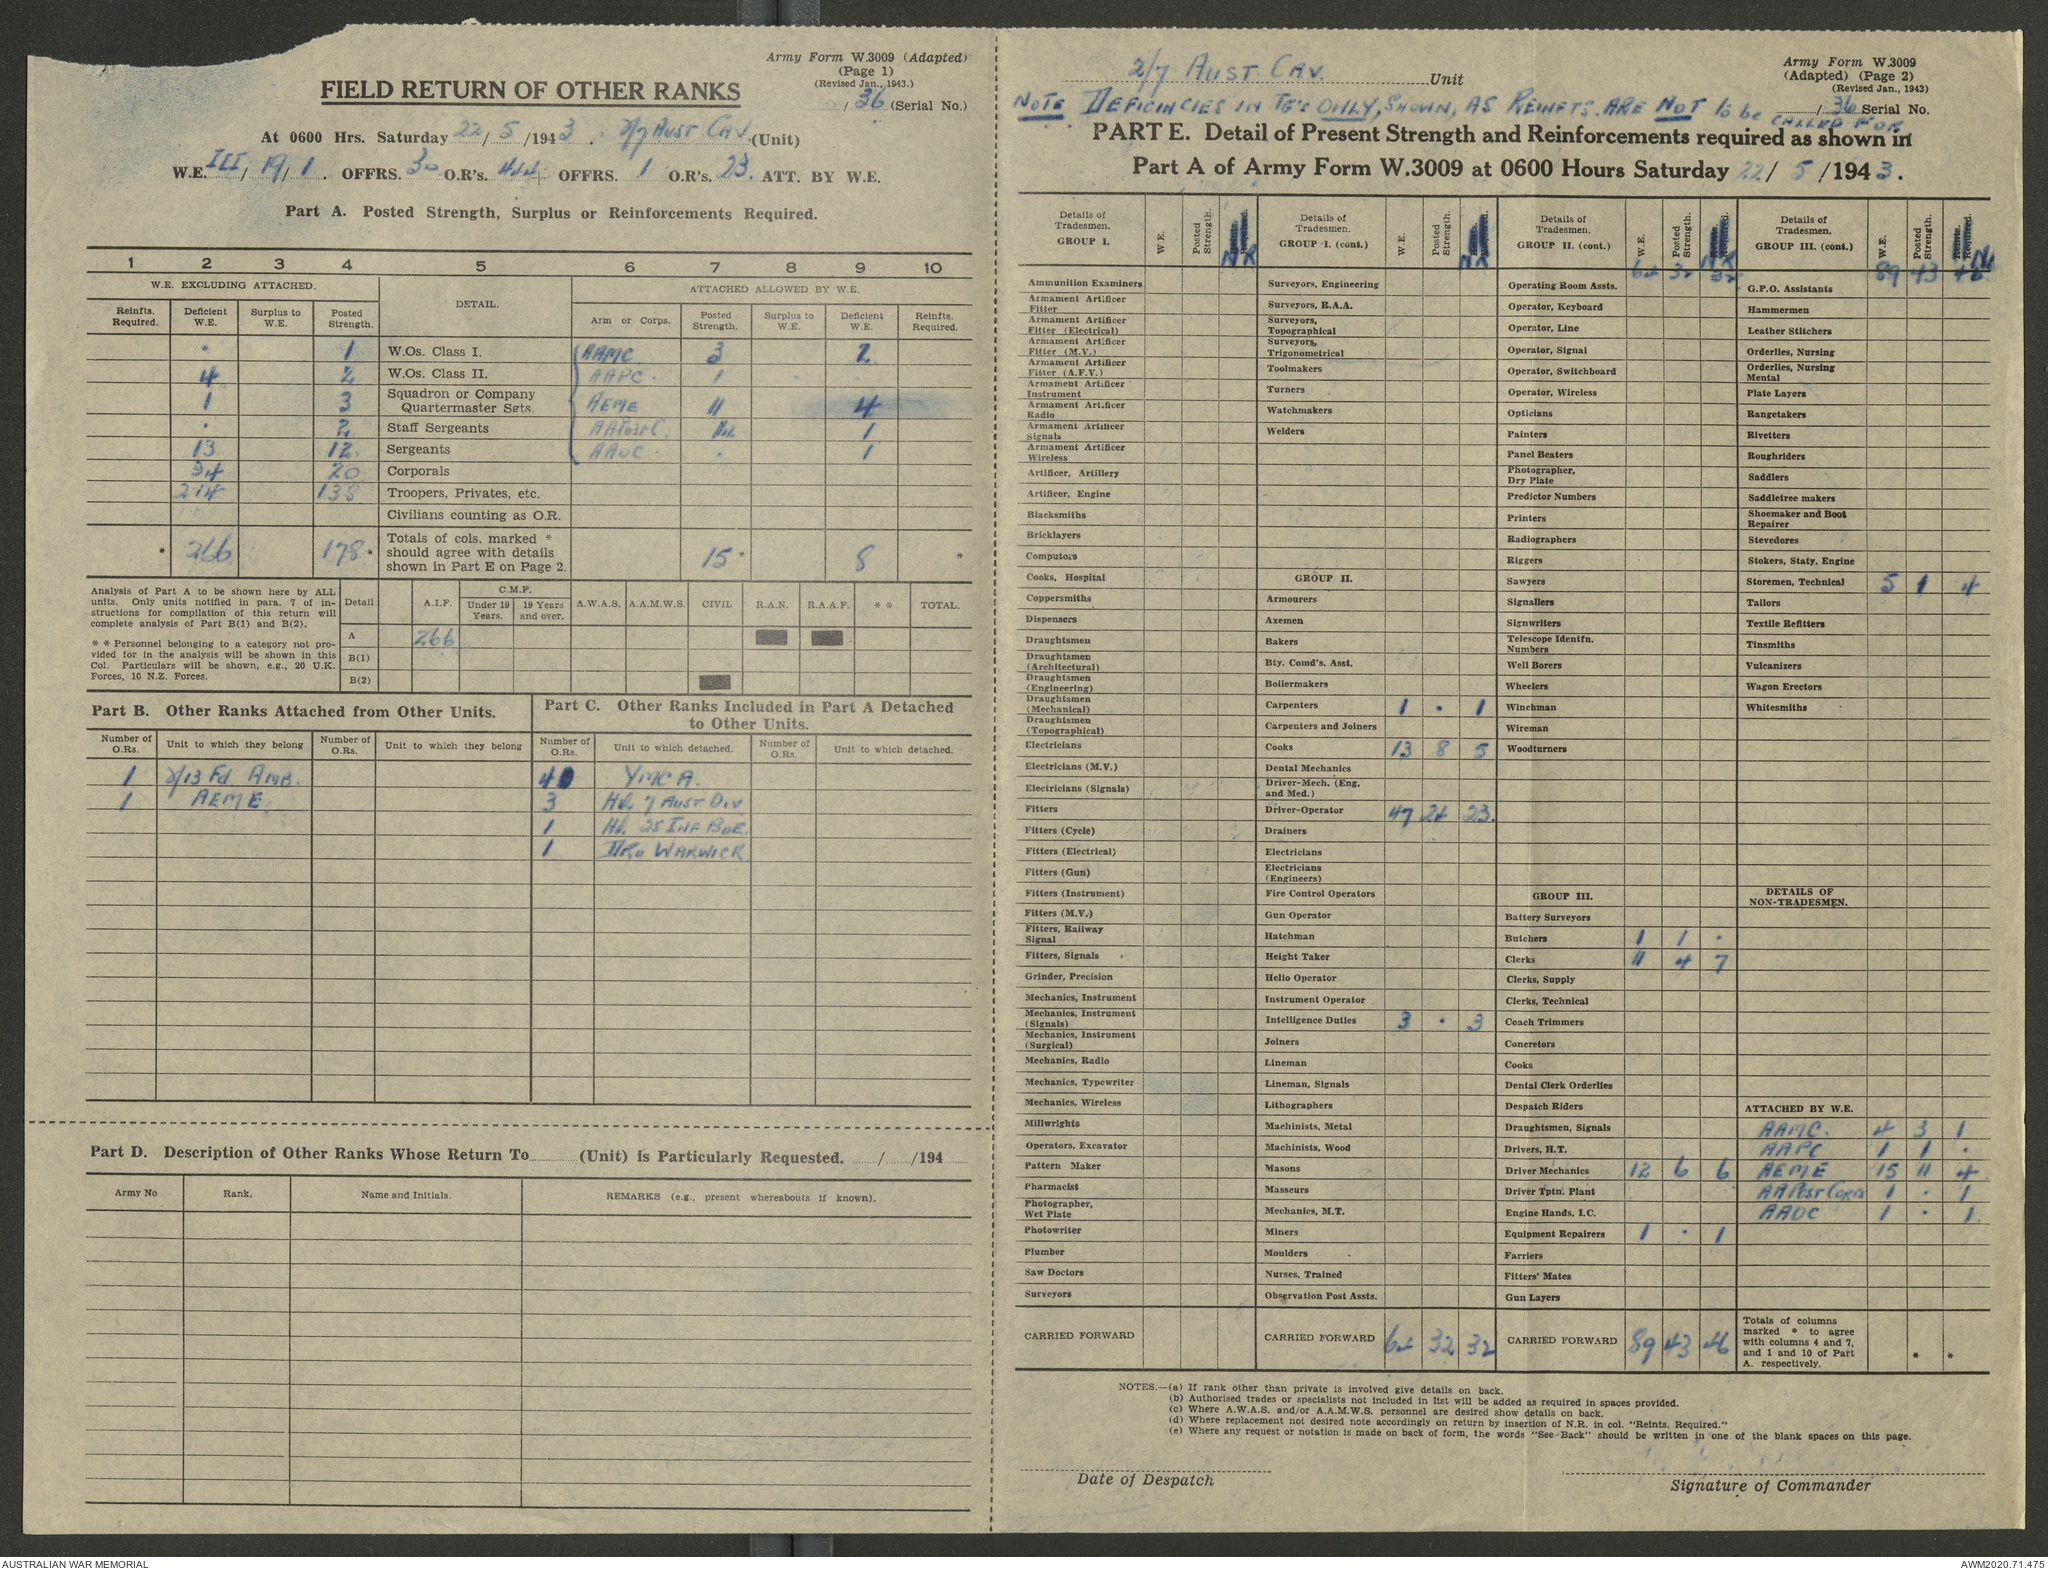 Army Form W.3009 (Adapted)
(Page 1)
(Revised Jan., 1943.)
FIELD RETURN OF OTHER RANKS
/ 36 (Serial No.)
At 0600 Hrs. Saturday 22/5/1943. 2/7 AUST CAV (Unit)
W.E. III/19/1. OFFRS. 30 O.R's. 444 OFFRS. 1 O.R's. 23. ATT. BY W.E.
Part A. Posted Strength, Surplus or Reinforcements Required.
1 2 3 4 5 6 7 8 9 10
W.E. EXCLUDING ATTACHED. DETAIL. ATTACHED ALLOWED BY W.E.
Reinfts. Required. Deficient W.E. Surplus to W.E. Posted Strength. Arm or Corps. Posted Strength. Surplus to W.E. Deficient W.E. Reinfts. Required.
. 1 W.Os. Class I. AAMC 3 2
4 2 W.Os. Class II. AAPC. 1 .
1 3 Squadron or Company Quartermaster Sgts. AEME 11 4
. 2 Staff Sergeants AAPost C. NIL 1
13 12 Sergeants AAOC . 1
34 20 Corporals
214 138 Troopers, Privates, etc.
Civilians counting as O.R.
* 266 178* Totals of cols. marked * should agree with details shown in Part E on Page 2. 15* 8 *
Analysis of Part A to be shown here by ALL units. Only units notified in para. 7 of instructions for compilation of this return will complete analysis of Part B(1) and B(2).
** Personnel belonging to a category not provided for in the analysis will be shown in this Col. Particulars will be shown, e.g., 20 U.K. Forces, 16 N.Z. Forces.
Detail A.I.F. C.M.F. Under 19 Years. 19 Years and over. A.W.A.S. A.A.M.W.S. CIVIL R.A.N. R.A.A.F. ** TOTAL.
A 266
B(1)
B(2)
Part B. Other Ranks Attached from Other Units.
Number of O.Rs. Unit to which they belong Number of O.Rs. Unit to which they belong
1 2/13 Fd AMB.
1 AEME
Part C. Other Ranks Included in Part A Detached to Other Units.
Number of O.Rs. Unit to which detached. Number of O.Rs. Unit to which detached.
4 YMCA.
3 HQ 7 AUST DIV
1 HQ 25 INF BDE.
1 WARWICK
Part D. Description of Other Ranks Whose Return To (Unit) is Particularly Requested. / /194
Army No Rank. Name and Initials. REMARKS (e.g., present whereabouts if known).
2/7 AUST. CAV. Unit
Army Form W.3009
(Adapted) (Page 2)
(Revised Jan., 1943)
/ 36 Serial No.
NOTE DEFICIENCIES IN TG's ONLY, SHOWN, AS REINFTS. ARE NOT to be CALLED FOR
PART E. Detail of Present Strength and Reinforcements required as shown in
Part A of Army Form W.3009 at 0600 Hours Saturday 22/5/1943.
Details of Tradesmen. GROUP I. W.E. Posted Strength. Reints. Required. NR
Ammunition Examiners
Armament Artificer Fitter
Armament Artificer Fitter (Electrical)
Armament Artificer Fitter (M.V.)
Armament Artificer Fitter (A.F.V.)
Armament Artificer Instrument
Armament Artificer Radio
Armament Artificer Signals
Armament Artificer Wireless
Artificer, Artillery
Artificer, Engine
Blacksmiths
Bricklayers
Computors
Cooks, Hospital
Coppersmiths
Dispensers
Draughtsmen
Draughtsmen (Architectural)
Draughtsmen (Engineering)
Draughtsmen (Mechanical)
Draughtsmen (Topographical)
Electricians
Electricians (M.V.)
Electricians (Signals)
Fitters
Fitters (Cycle)
Fitters (Electrical)
Fitters (Gun)
Fitters (Instrument)
Fitters (M.V.)
Fitters, Railway Signal
Fitters, Signals
Grinder, Precision
Mechanics, Instrument
Mechanics, Instrument (Signals)
Mechanics, Instrument (Surgical)
Mechanics, Radio
Mechanics, Typewriter
Mechanics, Wireless
Millwrights
Operators, Excavator
Pattern Maker
Pharmacist
Photographer, Wet Plate
Photowriter
Plumber
Saw Doctors
Surveyors
CARRIED FORWARD
Details of Tradesmen. GROUP I. (cont.) W.E. Posted Strength. Reints. Required. NR
Surveyors, Engineering
Surveyors, R.A.A.
Surveyors, Topographical
Surveyors, Trigonometrical
Toolmakers
Turners
Watchmakers
Welders
GROUP II.
Armourers
Axemen
Bakers
Bty. Comd's. Asst.
Boilermakers
Carpenters 1 . 1
Carpenters and Joiners
Cooks 13 8 5
Dental Mechanics
Driver-Mech. (Eng. and Med.)
Driver-Operator 47 24 23
Drainers
Electricians
Electricians (Engineers)
Fire Control Operators
Gun Operator
Hatchman
Height Taker
Helio Operator
Instrument Operator
Intelligence Duties 3 . 3
Joiners
Lineman
Lineman, Signals
Lithographers
Machinists, Metal
Machinists, Wood
Masons
Masseurs
Mechanics, M.T.
Miners
Moulders
Nurses, Trained
Observation Post Assts.
CARRIED FORWARD 64 32 32
Details of Tradesmen. GROUP II. (cont.) W.E. Posted Strength. Reints. Required. NR
64 32 32
Operating Room Assts.
Operator, Keyboard
Operator, Line
Operator, Signal
Operator, Switchboard
Operator, Wireless
Opticians
Painters
Panel Beaters
Photographer, Dry Plate
Predictor Numbers
Printers
Radiographers
Riggers
Sawyers
Signallers
Signwriters
Telescope Identfn. Numbers
Well Borers
Wheelers
Winchman
Wireman
Woodturners
GROUP III.
Battery Surveyors
Butchers 1 1 .
Clerks 11 4 7
Clerks, Supply
Clerks, Technical
Coach Trimmers
Concretors
Cooks
Dental Clerk Orderlies
Despatch Riders
Draughtsmen, Signals
Drivers, H.T.
Driver Mechanics 12 6 6
Driver Tptn. Plant
Engine Hands, I.C.
Equipment Repairers 1 . 1
Farriers
Fitters' Mates
Gun Layers
CARRIED FORWARD 89 43 46
Details of Tradesmen. GROUP III. (cont.) W.E. Posted Strength. Reints. Required. NR
89 43 46
G.P.O. Assistants
Hammermen
Leather Stitchers
Orderlies, Nursing
Orderlies, Nursing Mental
Plate Layers
Rangetakers
Rivetters
Roughriders
Saddlers
Saddletree makers
Shoemaker and Boot Repairer
Stevedores
Stokers, Staty. Engine
Storemen, Technical 5 1 4
Tailors
Textile Refitters
Tinsmiths
Vulcanizers
Wagon Erectors
Whitesmiths
DETAILS OF NON-TRADESMEN.
ATTACHED BY W.E.
AAMC. 4 3 1
AAPC 1 1 .
AEME 15 11 4
AAPost Corps 1 . 1
AAOC 1 . 1
Totals of columns marked * to agree with columns 4 and 7, and 1 and 10 of Part A. respectively. * *
NOTES.—(a) If rank other than private is involved give details on back.
(b) Authorised trades or specialists not included in list will be added as required in spaces provided.
(c) Where A.W.A.S. and/or A.A.M.W.S. personnel are desired show details on back.
(d) Where replacement not desired note accordingly on return by insertion of N.R. in col. "Reints. Required."
(e) Where any request or notation is made on back of form, the words "See Back" should be written in one of the blank spaces on this page.
Date of Despatch
Signature of Commander
AUSTRALIAN WAR MEMORIAL
AWM2020.71.475